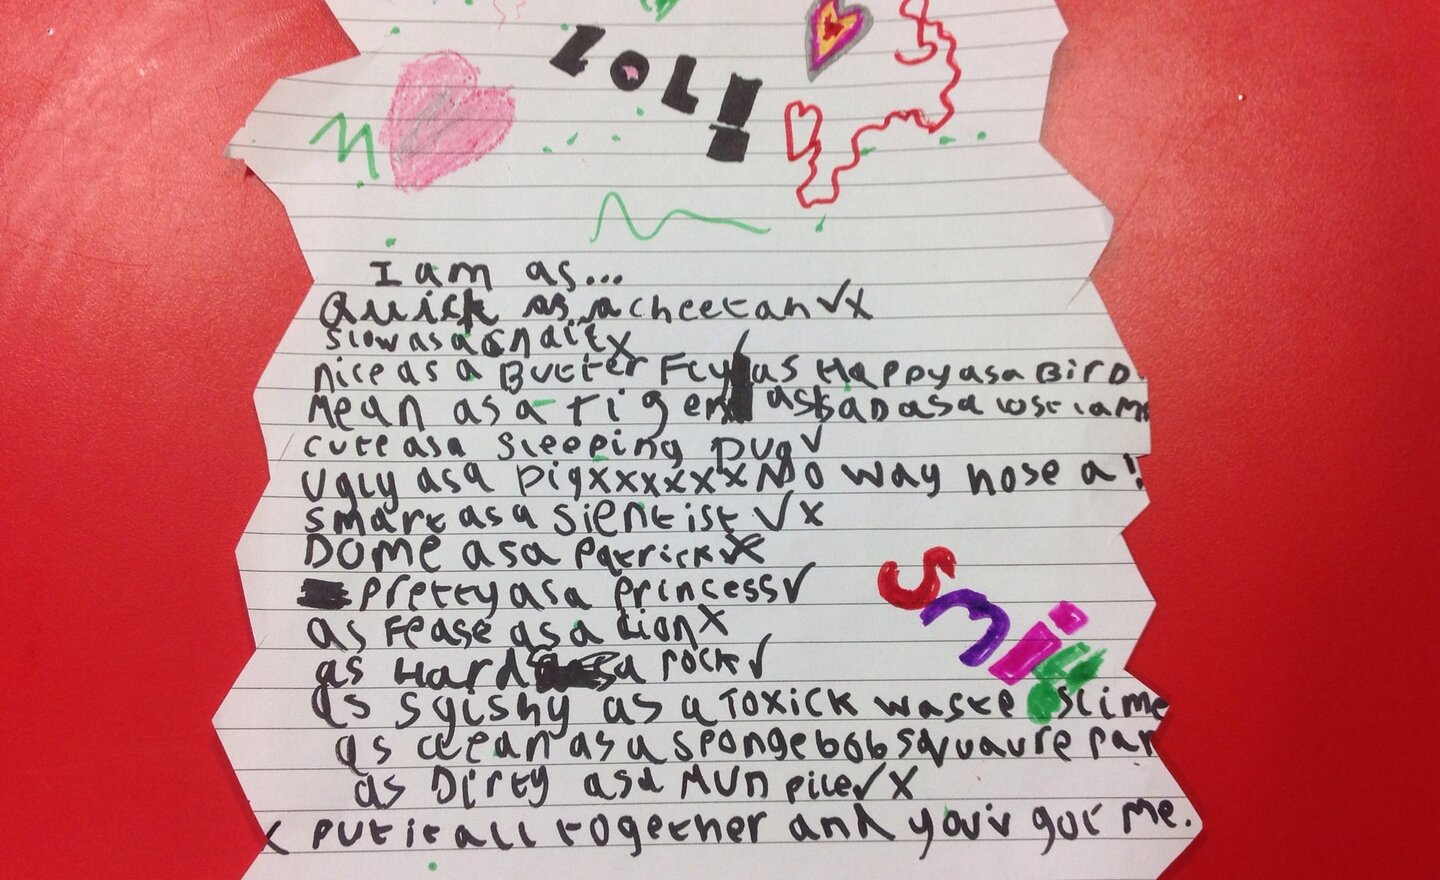 LOL!
I am as...
Quick as a cheetah ✓x
slow as a snail x
nice as a Butter Fly as Happy as a Bird.
Mean as a tiger as sad as a lost lam
cute as a sleeping pug ✓
ugly as a pig xxxxxxx No way hose a!
smart as a sientist ✓x
Dome as a Patrick x
pretty as a princess ✓
as fease as a Lion x
as Hard as a rock ✓
as sqishy as a Toxick waste slime
as clean as a spongebob squaure pan
as Dirty as a Mun pile ✓x
x put it all together and youv got me.
Smig